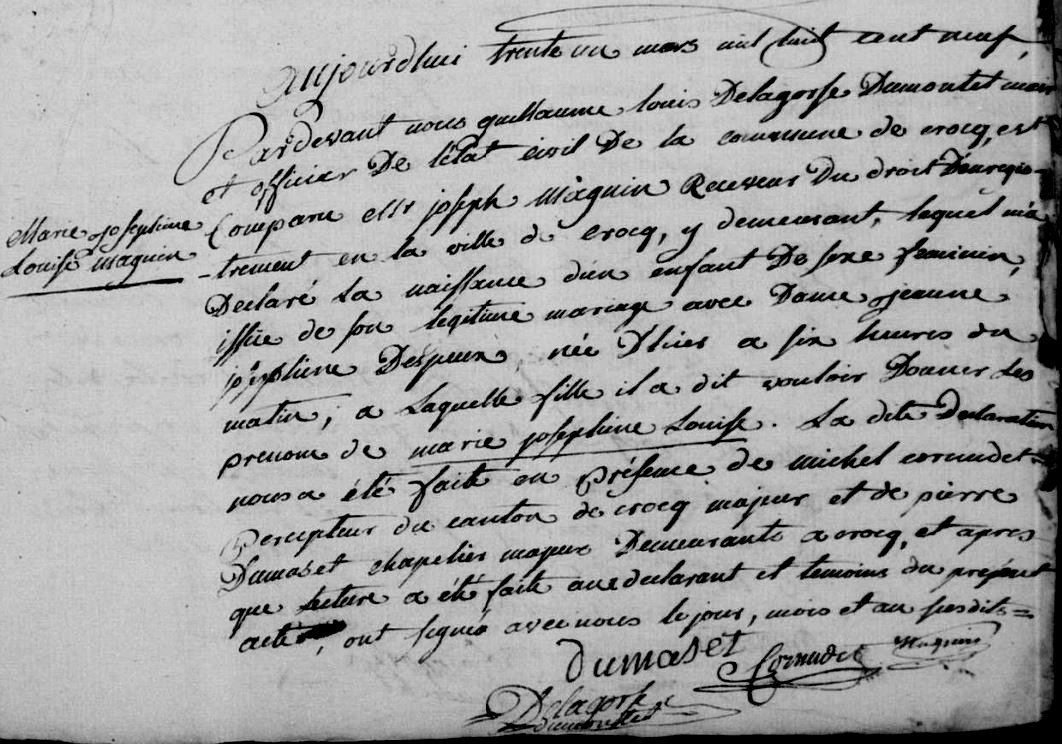 Aujourdhui trente un mars mil huit cent neuf,
Pardevant nous guillaume louis Delagorsse Dumontet maire
et officier De l'état civil De la commune de crocq, est
Marie josephine
Louise Maguin
Comparu Mr joseph Maguin Receveur Du droit D'enregis-
-trement en la ville de crocq, y demeurant, lequel m'a
Déclaré La naissance d'un enfant De sexe feminin,
issüe de son legitime mariage avec Dame jeanne
josephine Despeux, née D'hier a six heures du
matin, a Laquelle fille il a dit vouloir Donner Les
prenom de marie josephine Louise. La dite Declaration
nous a été faite en Présence de michel cornudet
Percepteur du canton de crocq majeur et de pierre
Dumaset chapelier majeur Demeurants a crocq, et apres
que Lecture a été faite aux declarant et temoins du present
acte, ont signé avec nous le jour, mois et an susdits=
Dumaset Cornudet Maguin
Delagorsse
Dumontet